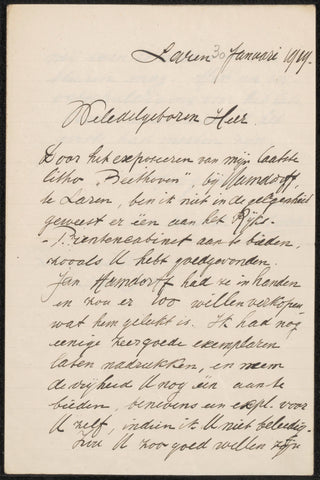 Laren 30 Januari 1919.
Weledelgeboren Heer.
Door het exposeeren van mijn laatste
litho "Beethoven", bij Hamdorff,
te Laren, ben ik niet in de gelegenheid
geweest er één aan het Rijks-
-Prentencabinet aan te bieden,
zooals U hebt goedgevonden.
Jan Hamdorff had ze in handen
en zou er 100 willen verkoopen
wat hem gelukt is. Ik had nog
eenige zeer goede exemplaren
laten nadrukken, en neem
de vrijheid U nog één aan te
bieden, benevens een expl. voor
U zelf, indien ik U niet beleedig.
Zou U zoo goed willen zijn